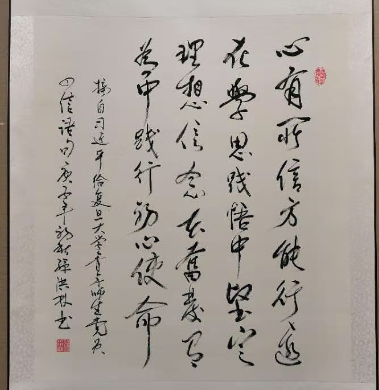 心有所信方能行远
在学思践悟中坚定
理想信念在奋发有
为中践行初心使命
摘自习近平给复旦大学青年师生党员
回信语句庚子年